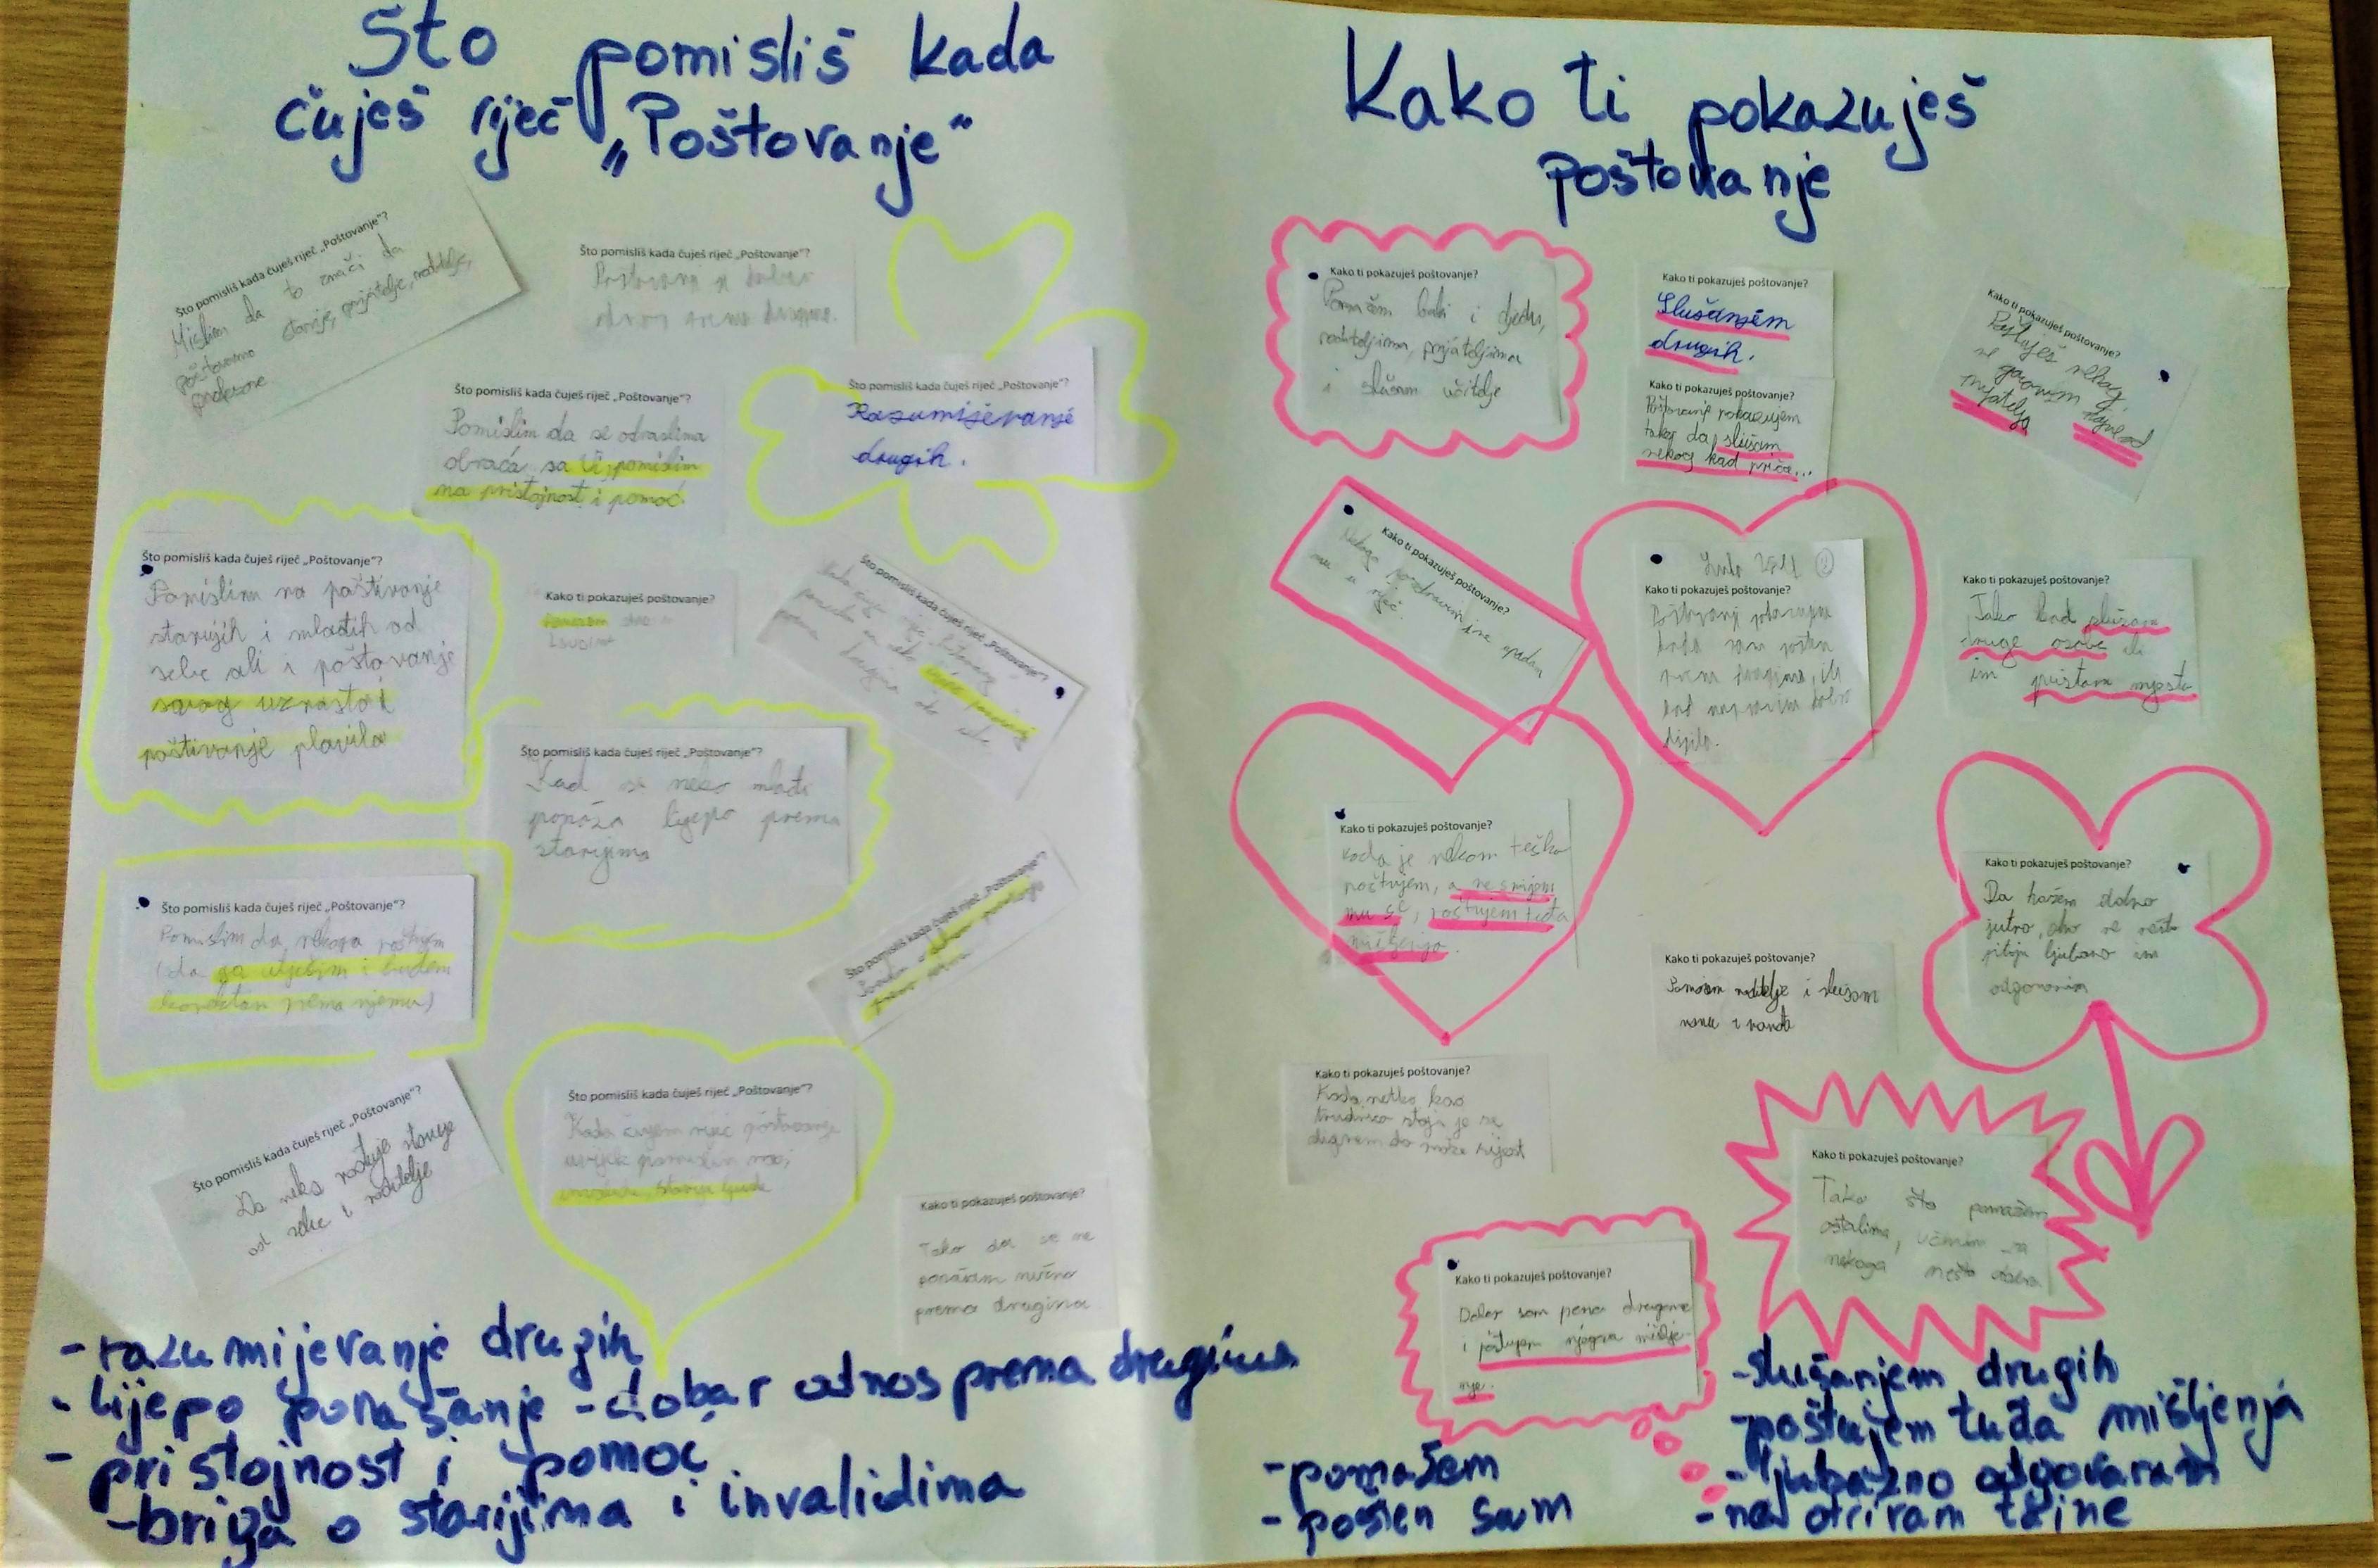 Što pomisliš kada
čuješ riječ „Poštovanje“
Što pomisliš kada čuješ riječ „Poštovanje“?
Mislim da to znači da
poštovamo starije, prijatelje, roditelje,
profesore
Što pomisliš kada čuješ riječ „Poštovanje“?
Što pomisliš kada čuješ riječ „Poštovanje“?
Pomislim da se odraslima
obraća sa Vi, pomislim
na pristojnost i pomoć.
Što pomisliš kada čuješ riječ „Poštovanje“?
Razumijevanje
drugih.
Što pomisliš kada čuješ riječ „Poštovanje“?
Pomislim na poštivanje
starijih i mlađih od
sebe ali i poštovanje
svog uzrasta i
poštivanje plavila
Kako ti pokazuješ poštovanje?
Što pomisliš kada čuješ riječ „Poštovanje“?
Što pomisliš kada čuješ riječ „Poštovanje“?
Kad se neko mlađi
ponaša lijepo prema
starijima
Što pomisliš kada čuješ riječ „Poštovanje“?
Pomislim da nekoga poštujem
(da ga utješim i budem
korektan prema njemu)
Što pomisliš kada čuješ riječ „Poštovanje“?
Što pomisliš kada čuješ riječ „Poštovanje“?
Da neko poštuje starije
od sebe i roditelje
Što pomisliš kada čuješ riječ „Poštovanje“?
Kada čujem riječ poštovanje
uvijek pomislim na
invalide, starije ljude
Kako ti pokazuješ poštovanje?
Tako da se ne
ponašam ružno
prema drugima
-razumijevanje drugih
-lijepo ponašanje -dobar odnos prema drugima
-pristojnost i pomoć
-briga o starijima i invalidima
Kako ti pokazuješ
poštovanje
Kako ti pokazuješ poštovanje?
Pomažem baki i djedu,
roditeljima, prijateljima
i slušam učitelje
Kako ti pokazuješ poštovanje?
Slušanjem
drugih.
Kako ti pokazuješ poštovanje?
Poštovanje pokazujem
tako da slušam
nekog kad priča...
Kako ti pokazuješ poštovanje?
Poštuješ nekog,
ne govorim
Kako ti pokazuješ poštovanje?
Nekoga pozdravim i ne upadam
mu u riječ.
Kako ti pokazuješ poštovanje?
Poštovanje pokazujem
kada sam pošten
prema drugima, ili
kad napravim dobro
dijelo.
Kako ti pokazuješ poštovanje?
Tako kad slušam
druge osobe ili
im pristava mjesto
Kako ti pokazuješ poštovanje?
Kada je nekom teško
poštujem, a ne smijem
mu se, poštujem tuđa
mišljenja.
Kako ti pokazuješ poštovanje?
Da kažem dobro
jutro, ako me nešto
pitaju ljubazno im
odgovorim
Kako ti pokazuješ poštovanje?
Pomažem roditelje i slušam
Kako ti pokazuješ poštovanje?
Kada netko kao
trudnica stoji ja se
dignem da može sijest
Kako ti pokazuješ poštovanje?
Tako što pomažem
ostalima, učinim za
nekoga nešto dobro
Kako ti pokazuješ poštovanje?
Dobar sam prema drugome
i poštujem njegova mišlje-
nje.
-pomažem
-pošten sam
-slušanjem drugih
-poštujem tuđa mišljenja
-ljubazno odgovaram